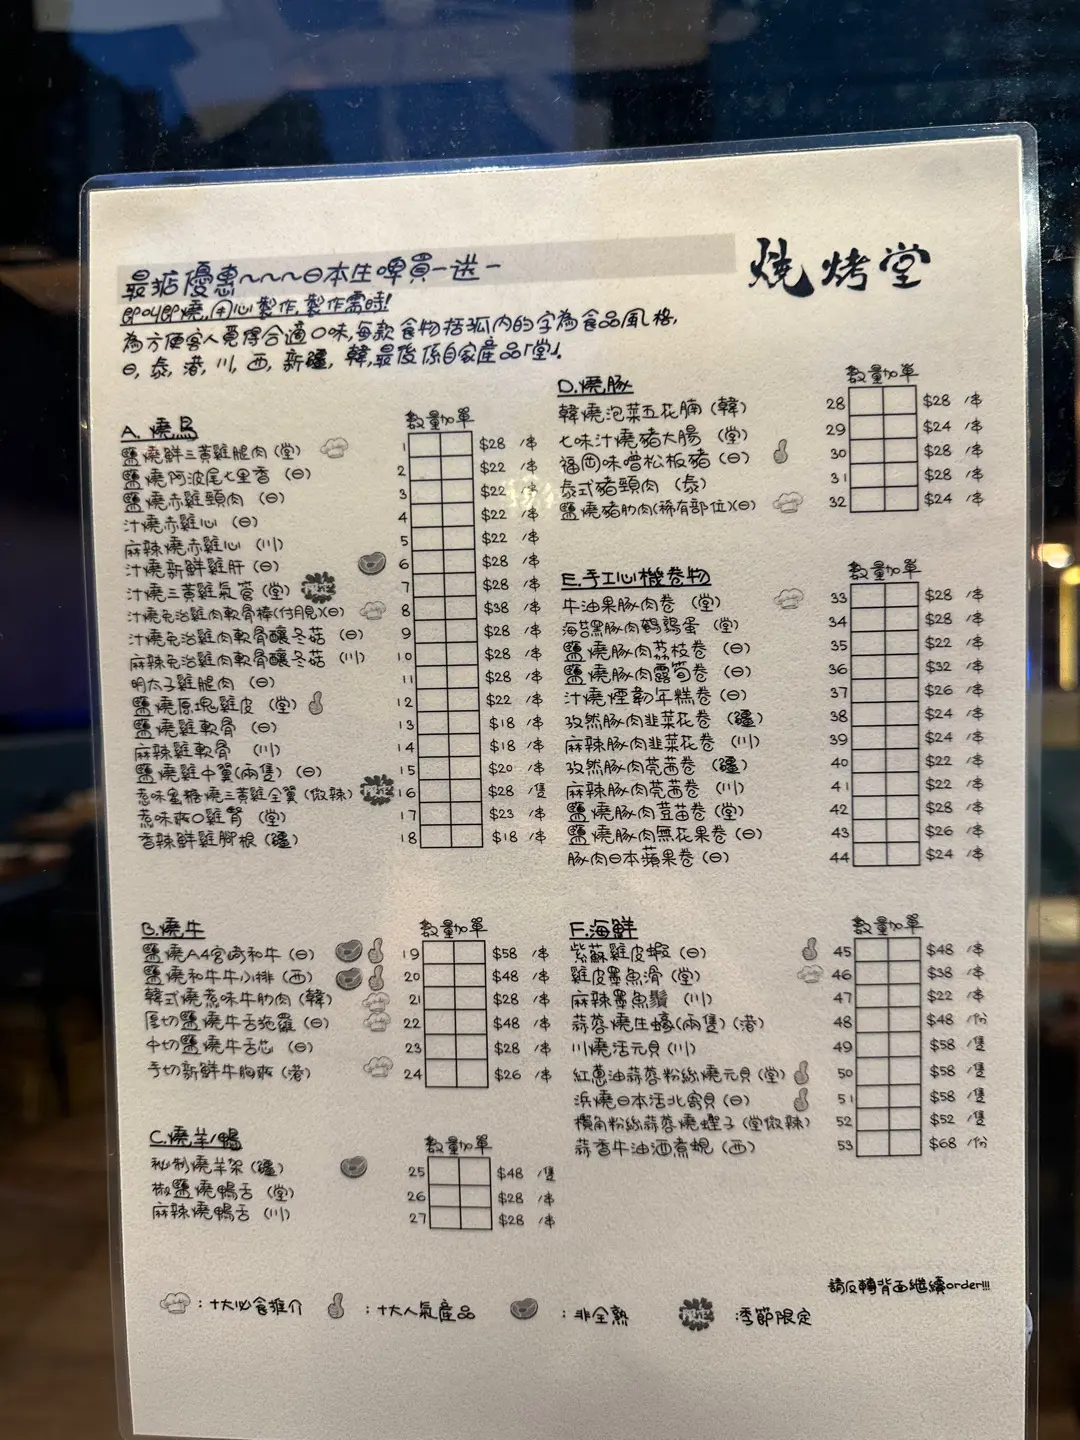 燒烤堂
最抵優惠~~~日本生啤買一送一
即叫即燒,用心製作,製作需時!
為方便客人覓得合適口味,每款食物括弧內的字為食品風格,
日,泰,港,川,西,新疆,韓,最後係自家產品「堂」.
A. 燒鳥 數量加單
鹽燒鮮三黃雞腿肉(堂) 1 $28 /串
鹽燒阿波尾七里香(日) 2 $22 /串
鹽燒赤雞頸肉(日) 3 $22 /串
汁燒赤雞心(日) 4 $22 /串
麻辣燒赤雞心(川) 5 $22 /串
汁燒新鮮雞肝(日) 6 $28 /串
汁燒三黃雞氣管(堂) 限定 7 $28 /串
汁燒免治雞肉軟骨棒(付月見)(日) 8 $38 /串
汁燒免治雞肉軟骨釀冬菇(日) 9 $28 /串
麻辣免治雞肉軟骨釀冬菇(川) 10 $28 /串
明太子雞腿肉(日) 11 $28 /串
鹽燒原塊雞皮(堂) 12 $22 /串
鹽燒雞軟骨(日) 13 $18 /串
麻辣雞軟骨(川) 14 $18 /串
鹽燒雞中翼(兩隻)(日) 15 $20 /串
惹味蜜糖燒三黃雞全翼(微辣) 限定 16 $28 /隻
惹味爽口雞腎(堂) 17 $23 /串
香辣鮮雞腳根(疆) 18 $18 /串
B.燒牛 數量加單
鹽燒A4宮崎和牛(日) 19 $58 /串
鹽燒和牛牛小排(西) 20 $48 /串
韓式燒惹味牛肋肉(韓) 21 $28 /串
厚切鹽燒牛舌拖羅(日) 22 $48 /串
中切鹽燒牛舌芯(日) 23 $28 /串
手切新鮮牛胸爽(港) 24 $26 /串
C.燒羊/鴨 數量加單
秘制燒羊架(疆) 25 $48 /隻
椒鹽燒鴨舌(堂) 26 $28 /串
麻辣燒鴨舌(川) 27 $28 /串
D.燒豚 數量加單
韓燒泡菜五花腩(韓) 28 $28 /串
七味汁燒豬大腸(堂) 29 $24 /串
福岡味噌松板豬(日) 30 $28 /串
泰式豬頸肉(泰) 31 $28 /串
鹽燒豬肋肉(稀有部位)(日) 32 $24 /串
E.手工心機卷物 數量加單
牛油果豚肉卷(堂) 33 $28 /串
海苔黑豚肉鵪鶉蛋(堂) 34 $28 /串
鹽燒豚肉荔枝卷(日) 35 $22 /串
鹽燒豚肉露筍卷(日) 36 $32 /串
汁燒煙肉年糕卷(日) 37 $26 /串
孜然豚肉韭菜花卷(疆) 38 $24 /串
麻辣豚肉韭菜花卷(川) 39 $24 /串
孜然豚肉芫茜卷(疆) 40 $22 /串
麻辣豚肉芫茜卷(川) 41 $22 /串
鹽燒豚肉荳苗卷(堂) 42 $28 /串
鹽燒豚肉無花果卷(日) 43 $26 /串
豚肉日本蘋果卷(日) 44 $24 /串
F.海鮮 數量加單
紫蘇雞皮蝦(日) 45 $48 /串
雞皮墨魚滑(堂) 46 $38 /串
麻辣墨魚鬚(川) 47 $22 /串
蒜蓉燒生蠔(兩隻)(港) 48 $48 /份
川燒活元貝(川) 49 $58 /隻
紅蔥油蒜蓉粉絲燒元貝(堂) 50 $58 /隻
浜燒日本活北寄貝(日) 51 $58 /隻
欖角粉絲蒜蓉燒蟶子(堂微辣) 52 $52 /隻
蒜香牛油酒煮蜆(西) 53 $68 /份
請反轉背面繼續order!!!
:十大必食推介 :十大人氣產品 :非全熟 限定 :季節限定